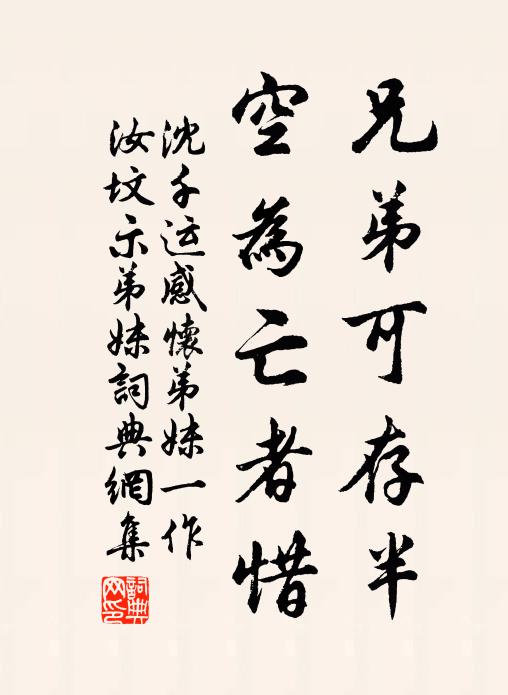 兄弟可存半
空為亡者惜
沈千运感懷弟妹一作
汝坟示弟妹詞典網集
詞典网印